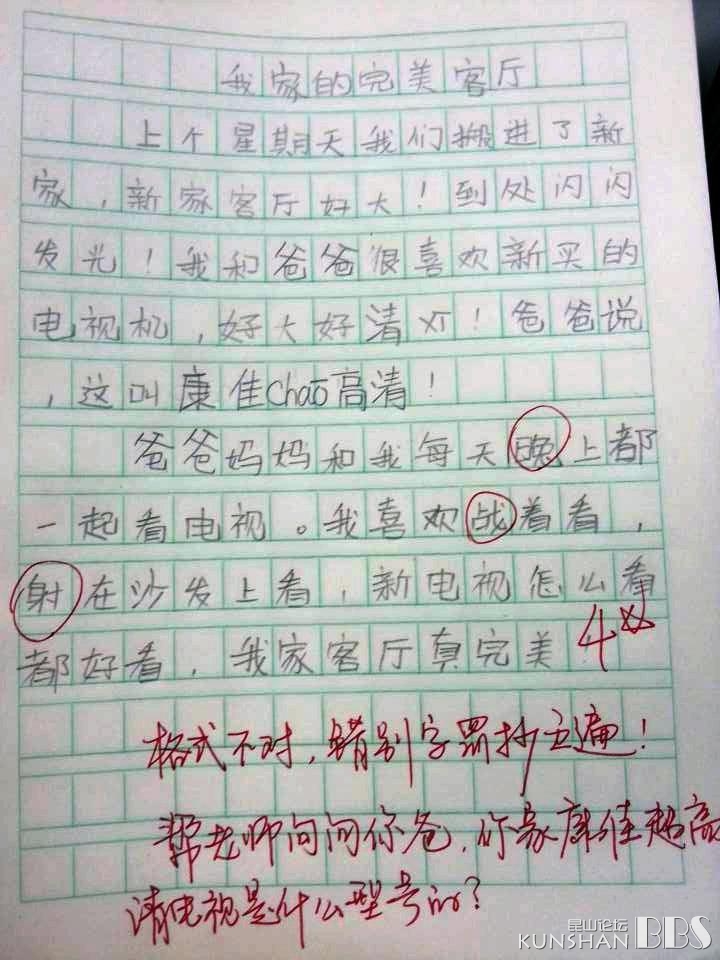 我家的完美客厅
上个星期天我们搬进了新
家，新家客厅好大！到处闪闪
发光！我和爸爸很喜欢新买的
电视机，好大好清！爸爸说
，这叫康佳chāo高清！
爸爸妈妈和我每天晚上都
一起看电视。我喜欢战着看，
射在沙发上看，新电视怎么看
都好看，我家客厅真完美
4分
格式不对，错别字罚抄五遍！
帮老师问问你爸，你家康佳超高
清电视是什么型号的？
昆山论坛
KUNSHAN BBS